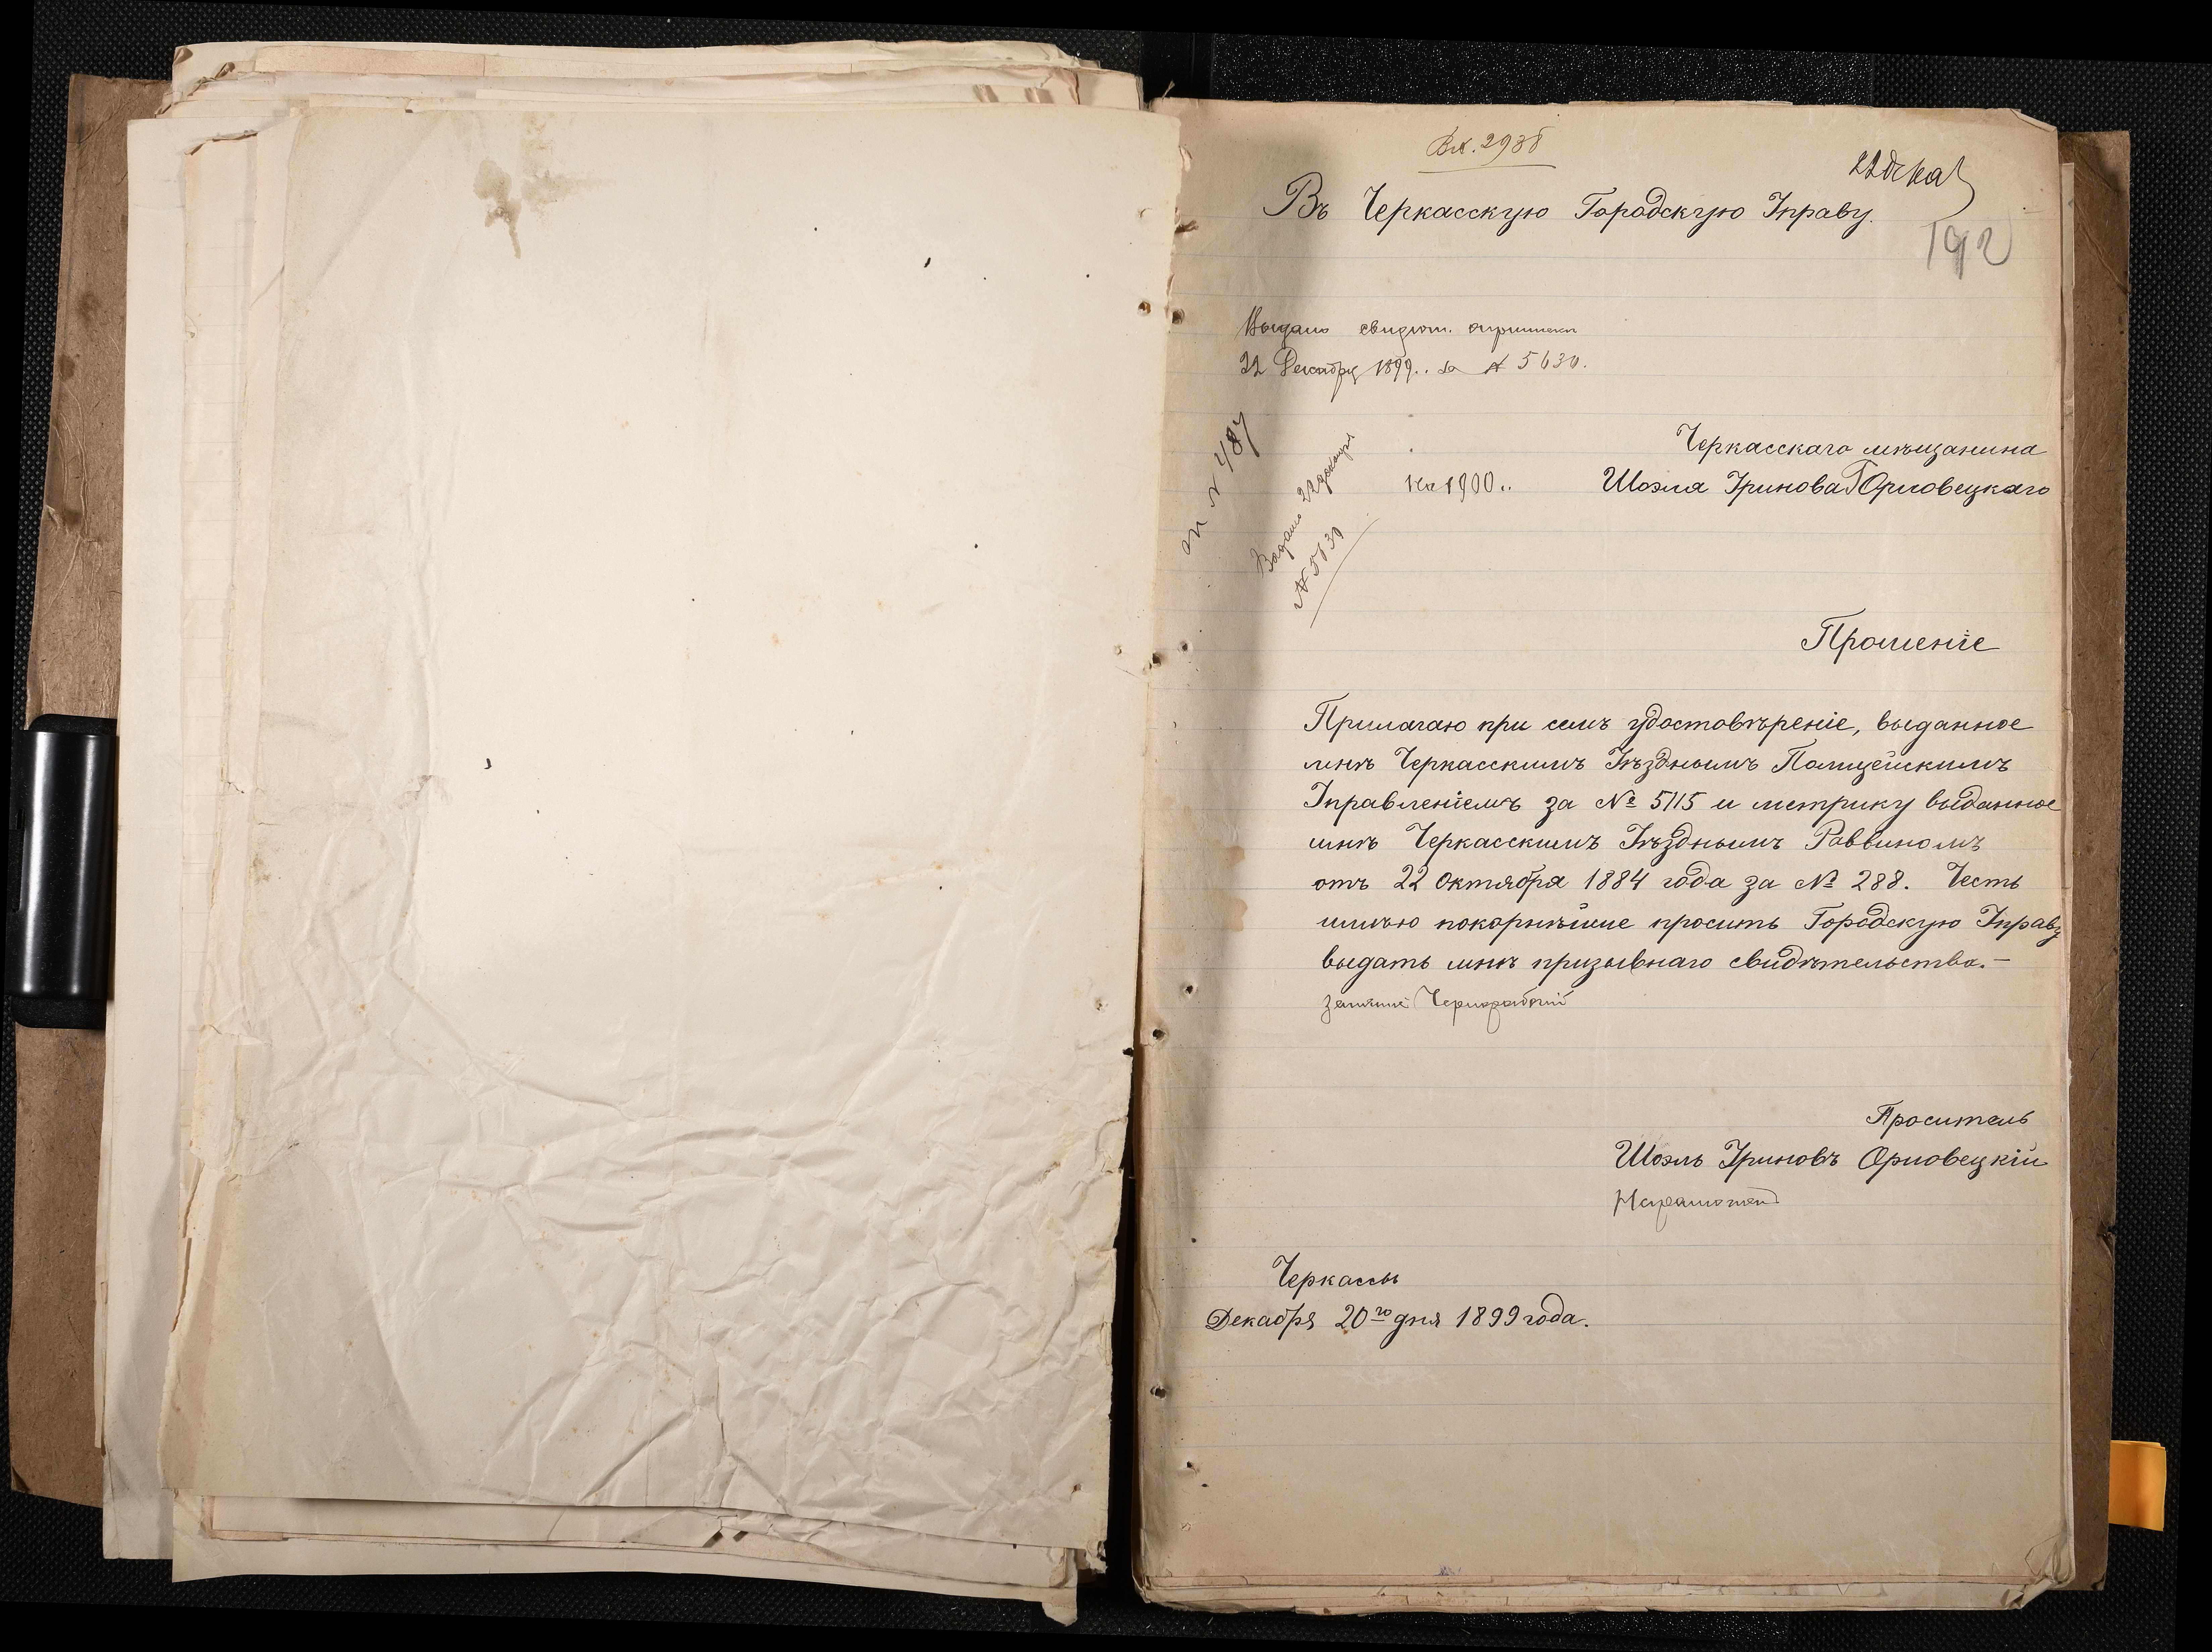 Вх. 2938
22 дека
Въ Черкасскую Городскую Управу.
192
Выдано свидѣт. о припискѣ
22 Декабря 1899 г. за № 5630.
№ 487
Выдано 22 декабря
№ 5630
Черкасскаго мѣщанина
на 1900 г.
Шоэля Уринова Орловецкаго
Прошеніе
Прилагаю при семъ удостовѣреніе, выданное
мнѣ Черкасскимъ Уѣзднымъ Полицейскимъ
Управленіемъ за № 5115 и метрику выданное
мнѣ Черкасскимъ Уѣзднымъ Раввиномъ
отъ 22 Октября 1884 года за № 288. Честь
имѣю покорнѣйше просить Городскую Управу
выдать мнѣ призывнаго свидѣтельства.—
Чернорабочій
Проситель
Шоэль Уриновъ Орловецкій
Неграмотный
Черкассы
Декабря 20го дня 1899 года.